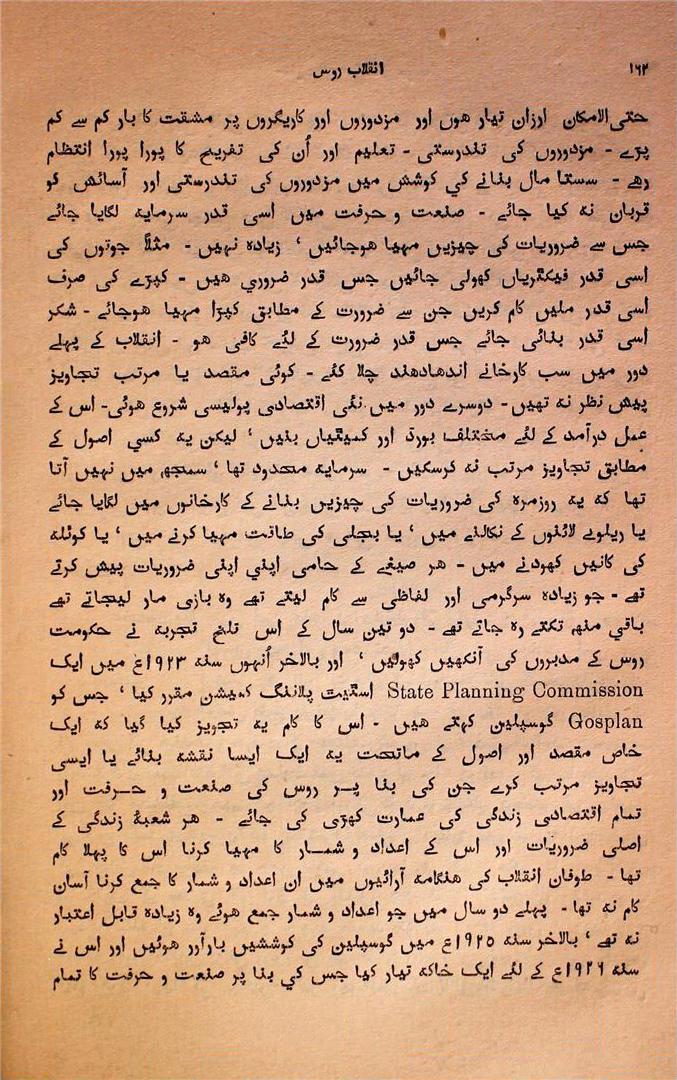 ۱۶۲
انقلاب روس
حتی الامکان ارزان تیار ہوں اور مزدوروں اور کاریگروں پر مشقت کا بار کم سے کم
پڑے - مزدوروں کی تندرستی - تعلیم اور اُن کی تفریح کا پورا پورا انتظام
رہے - سستا مال بنانے کي کوشش میں مزدوروں کی تندرستی اور آسائش کو
قربان نہ کیا جائے - صنعت و حرفت میں اسی قدر سرمایہ لگایا جائے
جس سے ضروریات کی چیزیں مہیا ہوجائیں ' زیادہ نہیں - مثلاً جوتوں کی
اسی قدر فیکٹریاں کھولی جائیں جس قدر ضروري ہیں - کپڑے کی صرف
اسی قدر ملیں کام کریں جن سے ضرورت کے مطابق کپڑا مہیا ہوجائے - شکر
اسی قدر بنائی جائے جس قدر ضرورت کے لئے کافی ہو - انقلاب کے پہلے
دور میں سب کارخانے اندھادھند چلا کئے - کوئی مقصد یا مرتب تجاویز
پیش نظر نہ تھیں - دوسرے دور میں نئی اقتصادی پولیسی شروع ہوئی - اس کے
عمل درآمد کے لئے مختلف بورڈ اور کمیٹیاں بنیں ' لیکن یہ کسي اصول کے
مطابق تجاویز مرتب نہ کرسکیں - سرمایہ محدود تھا ' سمجھ میں نہیں آتا
تھا کہ یہ روزمرہ کی ضروریات کی چیزیں بنانے کے کارخانوں میں لگایا جائے
یا ریلوے لائنوں کے نکالنے میں ' یا بجلی کی طاقت مہیا کرنے میں ' یا کوئلہ
کی کانیں کھودنے میں - ہر صیغے کے حامی اپني اپنی ضروریات پیش کرتے
تھے - جو زیادہ سرگرمی اور لفاظی سے کام لیتے تھے وہ بازی مار لیجاتے تھے
باقي منہ تکتے رہ جاتے تھے - دو تین سال کے اس تلخ تجربہ نے حکومت
روس کے مدبروں کی آنکھیں کھولیں ' اور بالاخر اُنہوں سنہ ۱۹۲۳ع میں ایک
State Planning Commission اسٹیٹ پلاننگ کمیشن مقرر کیا ' جس کو
Gosplan گوسپلین کہتے ہیں - اس کا کام یہ تجویز کیا گیا کہ ایک
خاص مقصد اور اصول کے ماتحت یہ ایک ایسا نقشہ بنائے یا ایسی
تجاویز مرتب کرے جن کی بنا پر روس کی صنعت و حرفت اور
تمام اقتصادی زندگی کی عمارت کھڑی کی جائے - ہر شعبۂ زندگی کے
اصلی ضروریات اور اس کے اعداد و شمار کا مہیا کرنا اس کا پہلا کام
تھا - طوفان انقلاب کی ہنگامہ آرائیوں میں ان اعداد و شمار کا جمع کرنا آسان
کام نہ تھا - پہلے دو سال میں جو اعداد و شمار جمع ہوئے وہ زیادہ قابل اعتبار
نہ تھے ' بالاخر سنہ ۱۹۲۵ع میں گوسپلین کی کوششیں بارآور ہوئیں اور اس نے
سنہ ۱۹۲۶ع کے لئے ایک خاکہ تیار کیا جس کي بنا پر صنعت و حرفت کا تمام